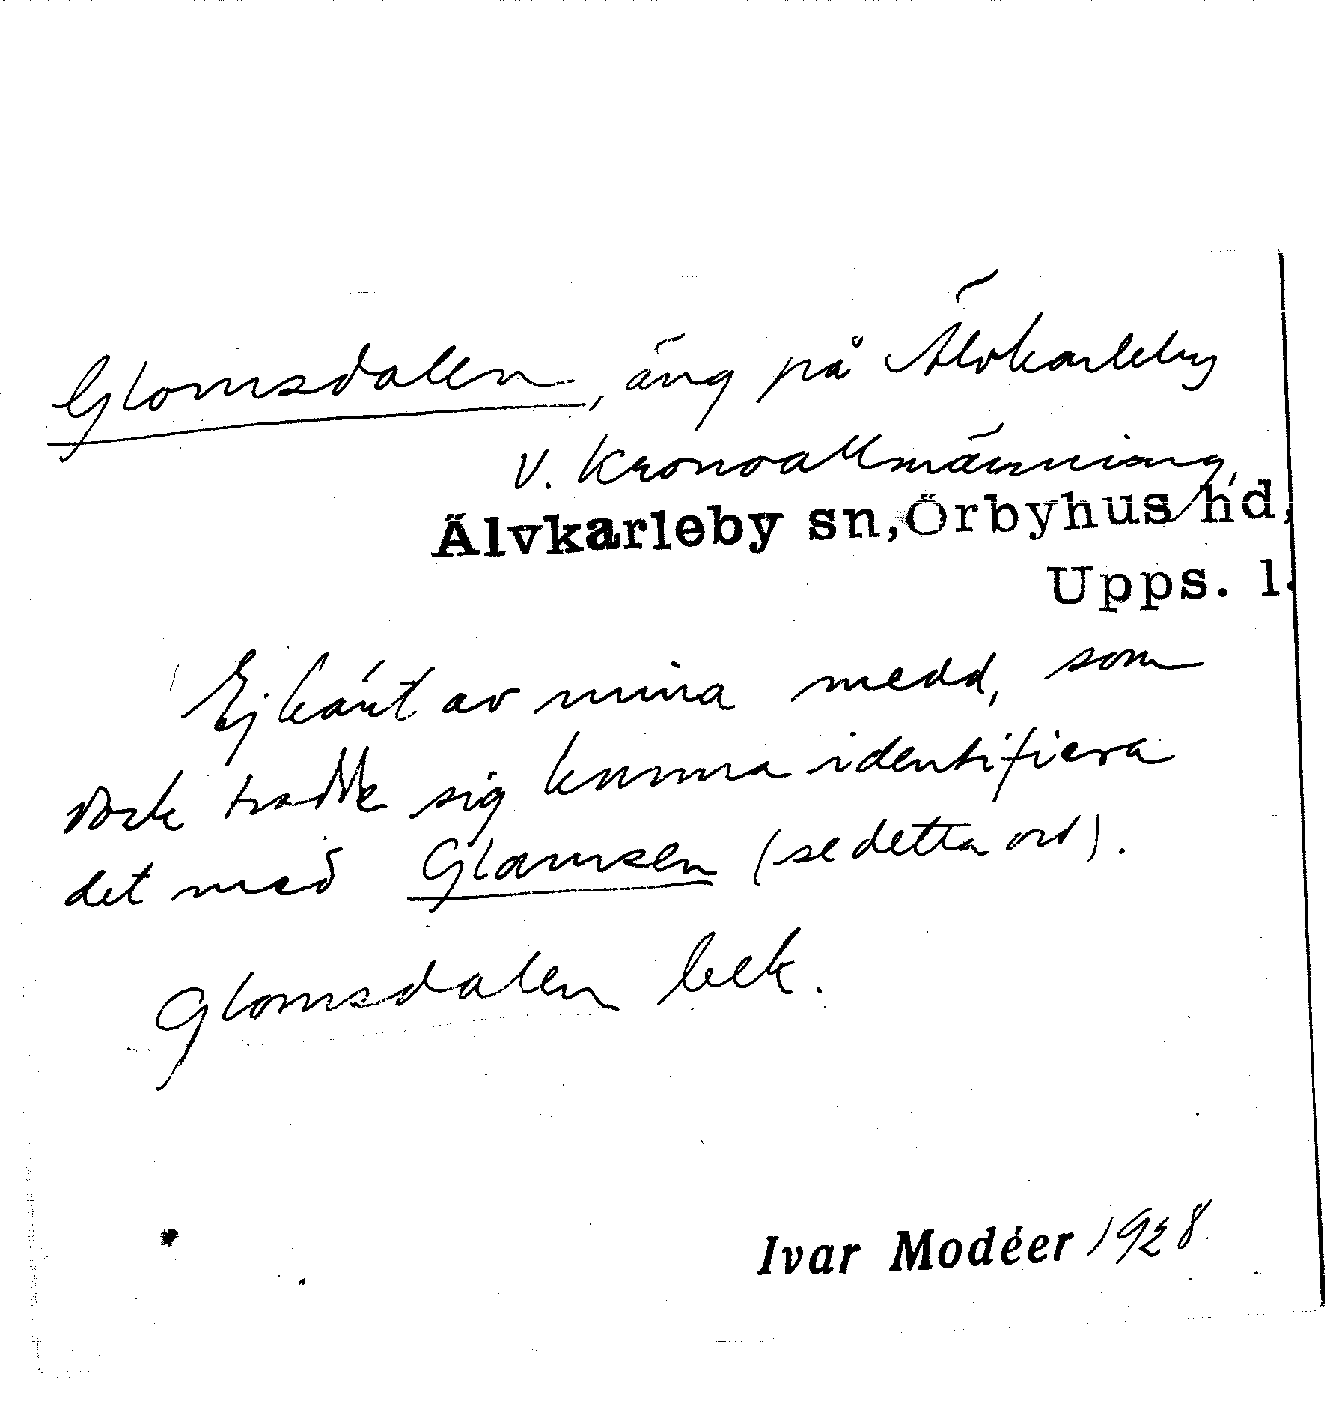 Glomsdalen, äng på Älvkarleby
v. kronoallmänning,
Älvkarleby sn, Örbyhus hd,
Upps. l.
Ej känt av mina medd, som
dock trodde sig kunna identifiera
det med Glamsen (se detta ord).
Glomsdalen bek.
Ivar Modéer 1928